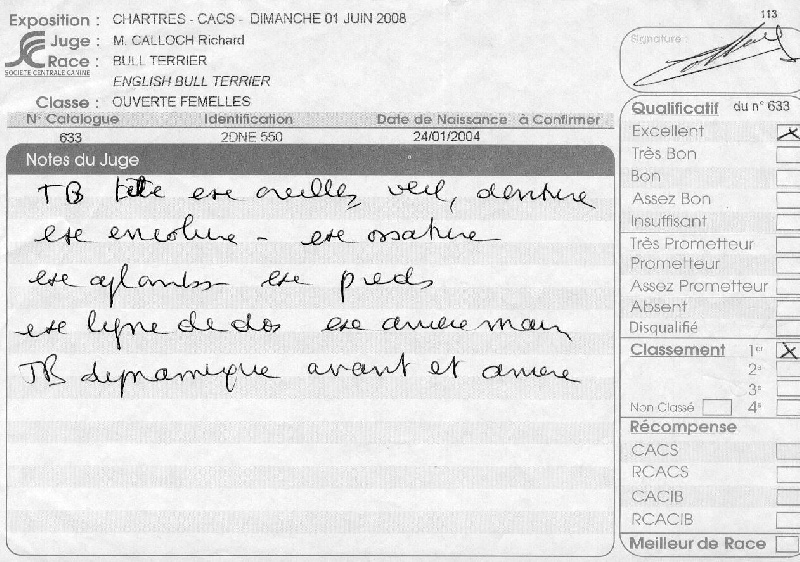 113
Exposition : CHARTRES - CACS - DIMANCHE 01 JUIN 2008
Juge : M. CALLOCH Richard
Race : BULL TERRIER
SOCIETE CENTRALE CANINE
ENGLISH BULL TERRIER
Classe : OUVERTE FEMELLES
Signature :
N° Catalogue Identification Date de Naissance à Confirmer
633 2DNE 550 24/01/2004
Notes du Juge
TB tête exe oreilles, oeil, denture
exe encolure - exe ossature
exe aplombs exe pieds
exe ligne de dos exe arriere main
TB dynamique avant et arriere
Qualificatif du n° 633
Excellent X
Très Bon
Bon
Assez Bon
Insuffisant
Très Prometteur
Prometteur
Assez Prometteur
Absent
Disqualifié
Classement 1er X
2e
3e
Non Classé 4e
Récompense
CACS
RCACS
CACIB
RCACIB
Meilleur de Race